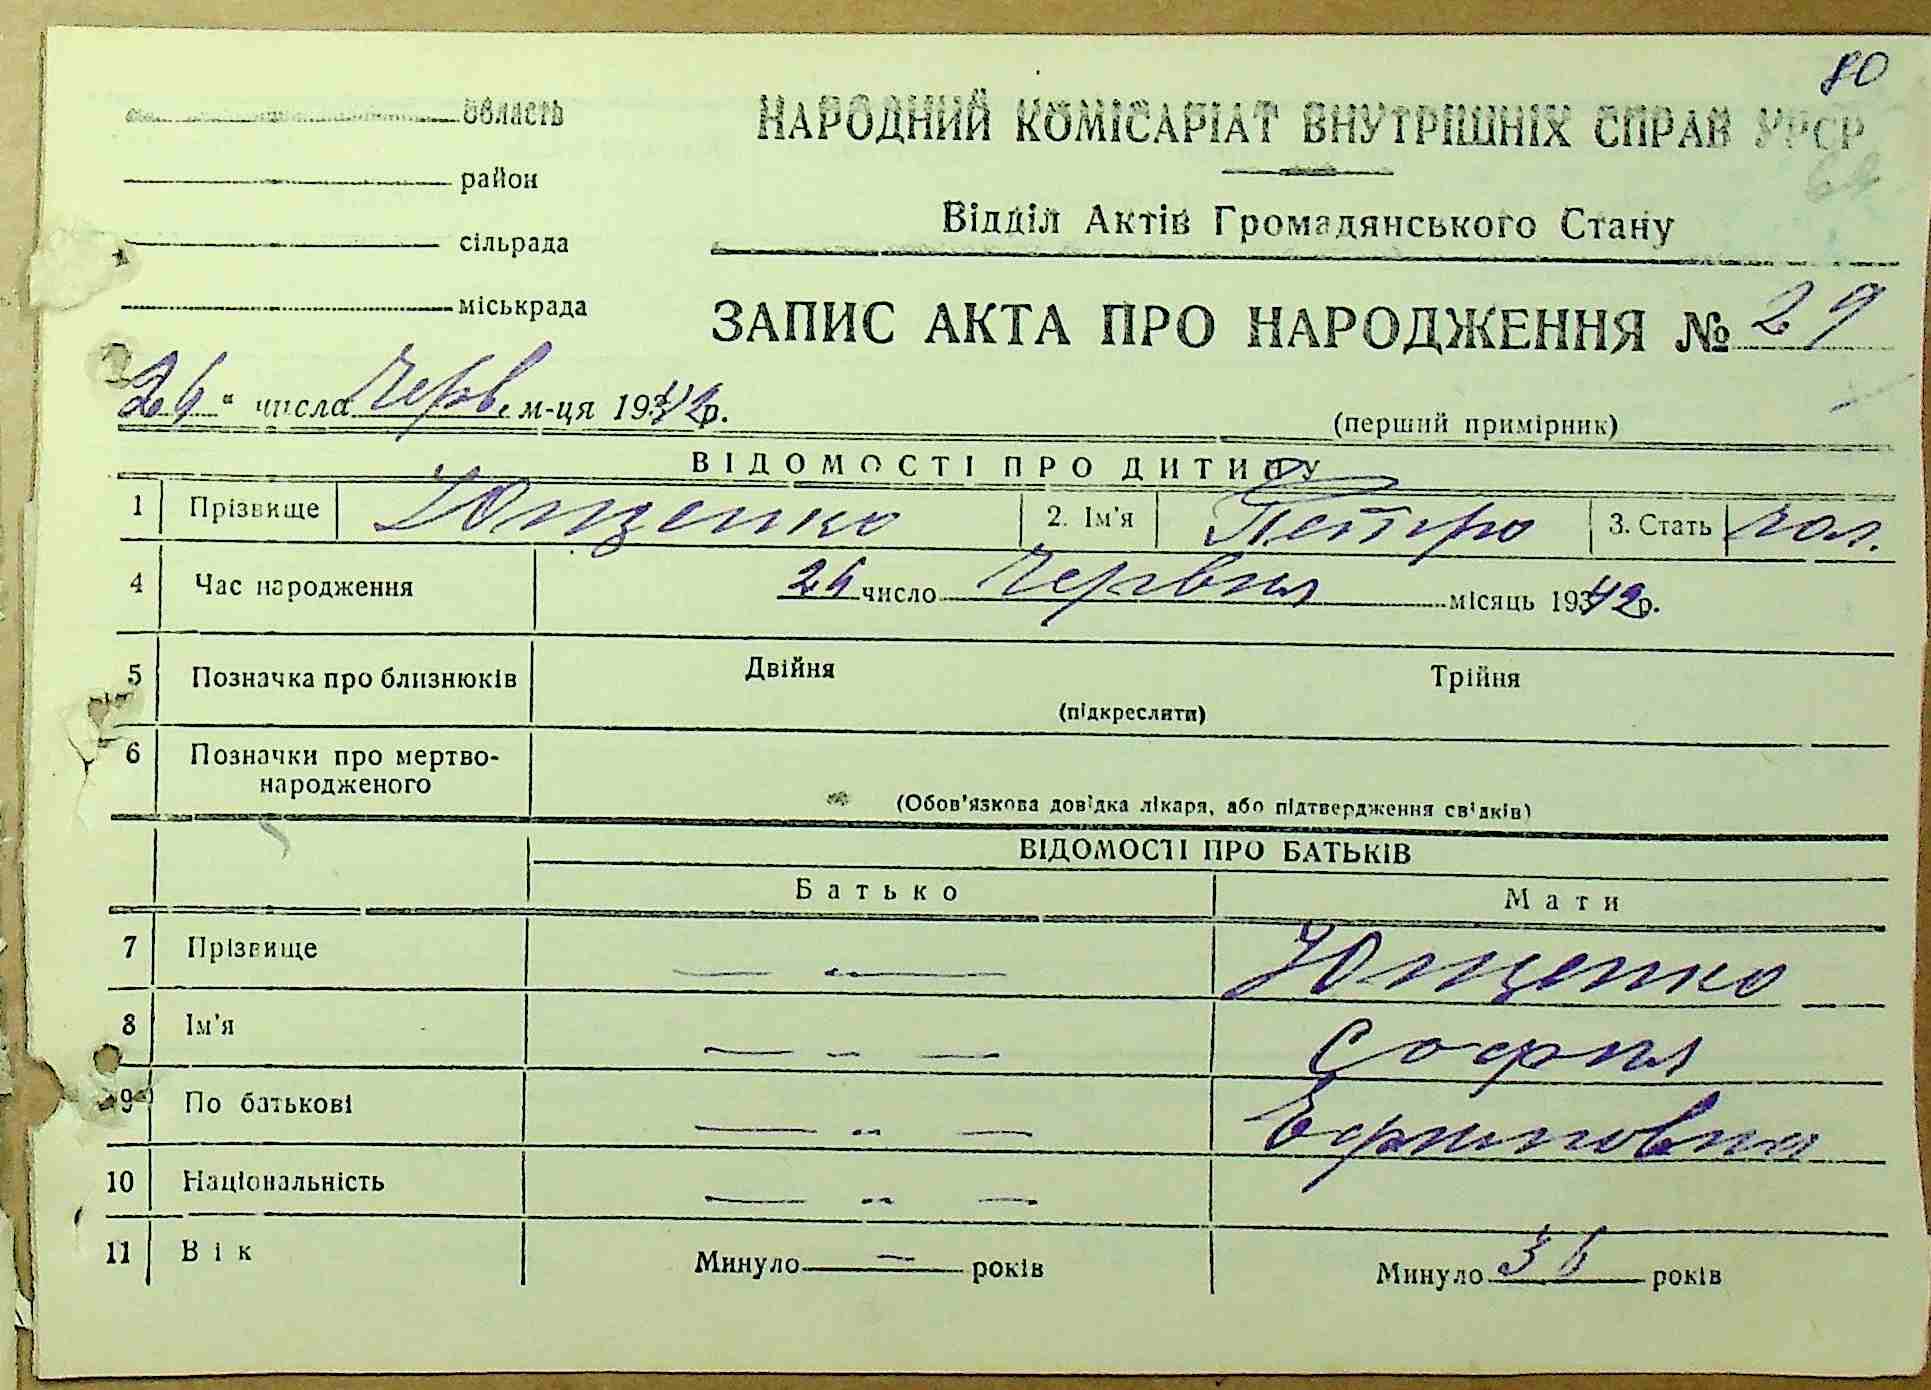 80
область
НАРОДНИЙ КОМІСАРІАТ ВНУТРІШНІХ СПРАВ УРСР
район
Відділ Актів Громадянського Стану
сільрада
міськрада
ЗАПИС АКТА ПРО НАРОДЖЕННЯ № 29
26 " числа Черв. м-ця 1942р.
(перший примірник)
ВІДОМОСТІ ПРО ДИТИНУ
1 Прізвище Ющенко 2. Ім'я Петро 3. Стать чол.
4 Час народження 26 число Червня місяць 1942р.
5 Позначка про близнюків Двійня Трійня
(підкреслити)
6 Позначки про мертво-
народженого
(Обов'язкова довідка лікаря, або підтвердження свідків)
ВІДОМОСТІ ПРО БАТЬКІВ
Батько Мати
7 Прізвище — — Ющенко
8 Ім'я — - — София
9 По батькові — - — Ефимовна
10 Національність — - —
11 Вік Минуло — років Минуло 36 років